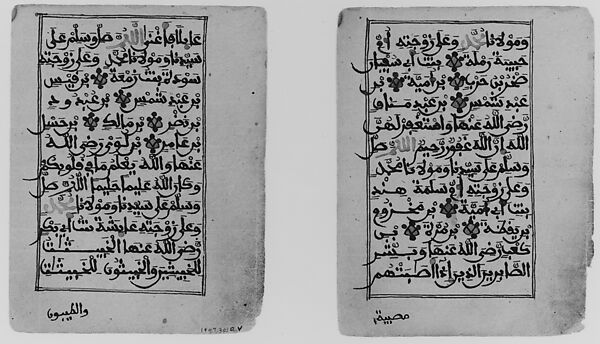 ومولانا محمد وعلى زوجته أم
حبيبة رملة بنت أبي سفيان
صخر بن حرب بن أمية بن
عبد شمس بن عبد مناف
رضي الله عنها واستغفر لهن
الله إن الله غفور رحيم اللهم صل
وسلم على سيدنا ومولانا محمد
وعلى زوجته أم سلمة هند
بنت أبي أمية بن مخزوم
بن يقظة بن مرة بن
كعب رضي الله عنها وبشر
الصابرين الذين إذا أصابتهم
مصيبة
عائلا فأغنى اللهم صل وسلم على
سيدنا ومولانا محمد وعلى زوجته
سودة بنت زمعة بن قيس
بن عبد شمس بن عبد ود
بن نصر بن مالك بن حسل
بن عامر بن لؤي رضي الله
عنها والله يعلم ما في قلوبكم
وكان الله عليما حليما اللهم صل
وسلم على سيدنا ومولانا محمد
وعلى زوجته عائشة بنت أبي بكر
رضي الله عنها الخبيثات
للخبيثين والخبيثون للخبيثات
والطيبون